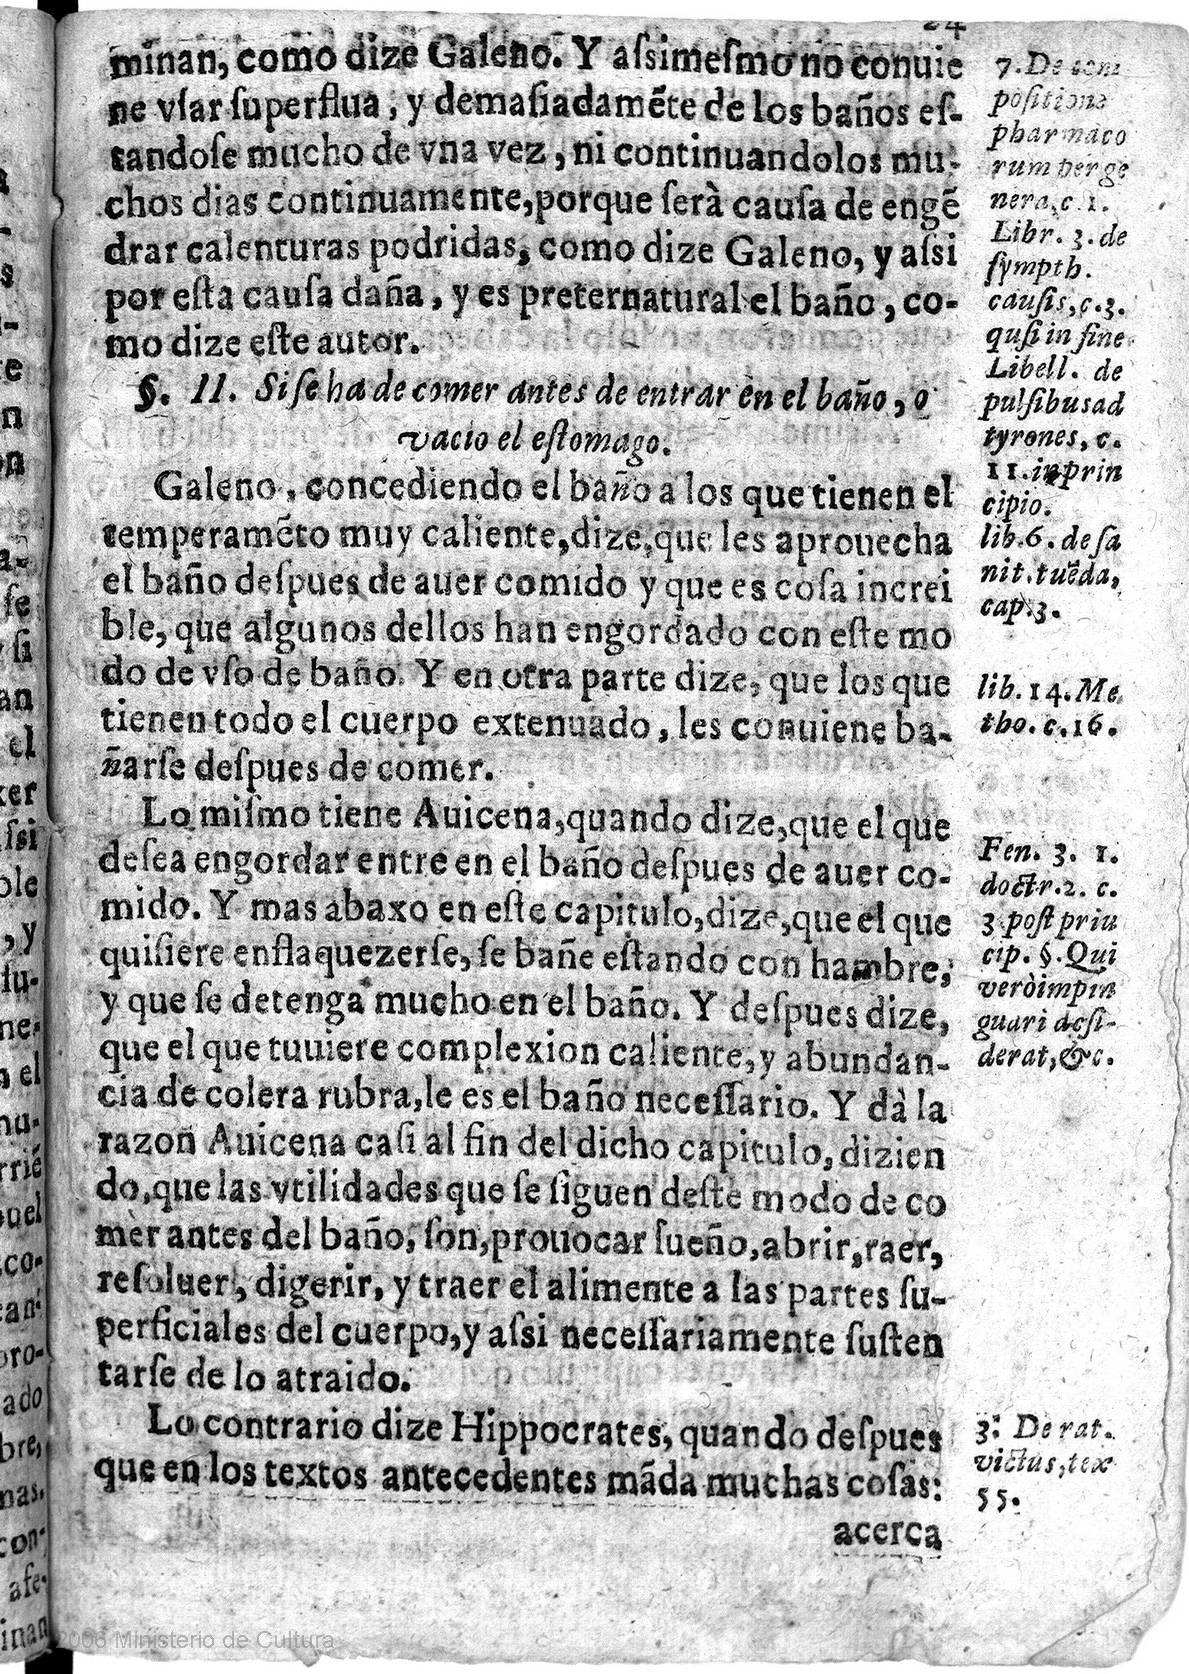 24
minan, como dize Galeno. Y aſsimeſmo no conuie
ne vſar ſuperflua, y demaſiadamẽte de los baños eſ-
tandoſe mucho de vna vez, ni continuandolos mu-
chos dias continuamente, porque ſerà cauſa de engẽ
drar calenturas podridas, como dize Galeno, y aſsi
por eſta cauſa daña, y es preternatural el baño, co-
mo dize eſte autor.
§. II. Si ſe ha de comer antes de entrar en el baño, o
vacio el eſtomago.
Galeno, concediendo el baño a los que tienen el
temperamẽto muy caliente, dize, que les aprouecha
el baño deſpues de auer comido y que es coſa increi
ble, que algunos dellos han engordado con eſte mo
do de vſo de baño. Y en otra parte dize, que los que
tienen todo el cuerpo extenuado, les conuiene ba-
ñarſe deſpues de comer.
Lo miſmo tiene Auicena, quando dize, que el que
deſea engordar entre en el baño deſpues de auer co-
mido. Y mas abaxo en eſte capitulo, dize, que el que
quiſiere enflaquezerſe, ſe bañe eſtando con hambre,
y que ſe detenga mucho en el baño. Y deſpues dize,
que el que tuuiere complexion caliente, y abundan-
cia de colera rubra, le es el baño neceſſario. Y dà la
razon Auicena caſi al fin del dicho capitulo, dizien
do, que las vtilidades que ſe ſiguen deſte modo de co
mer antes del baño, ſon, prouocar ſueño, abrir, raer,
reſoluer, digerir, y traer el alimente a las partes ſu-
perficiales del cuerpo, y aſsi neceſſariamente ſuſten
tarſe de lo atraido.
Lo contrario dize Hippocrates, quando deſpues
que en los textos antecedentes mãda muchas coſas:
acerca
7. De com
poſitione
pharmaco
rum per ge
nera, c. 1.
Libr. 3. de
ſympth.
cauſis, c. 3.
quſi in fine
Libell. de
pulſibus ad
tyrones, c.
11. in prin
cipio.
lib. 6. de ſa
nit. tuẽda,
cap. 3.
lib. 14. Me
tho. c. 16.
Fen. 3. 1.
doctr. 2. c.
3 poſt prin
cip. §. Qui
verò impin
guari deſi-
derat, &c.
3. De rat.
victus, tex
55.
2006 Ministerio de Cultura